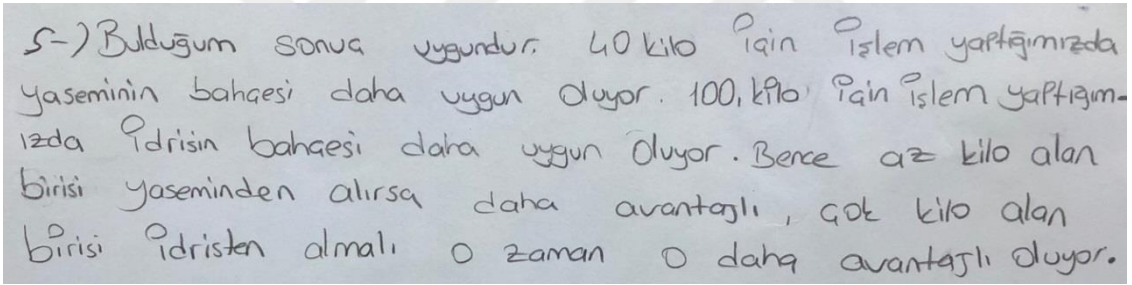 5-) Bulduğum sonuç uygundur. 40 kilo için işlem yaptığımızda
yaseminin bahçesi daha uygun oluyor. 100, kilo için işlem yaptığım-
ızda idrisin bahçesi daha uygun oluyor. Bence az kilo alan
birisi yaseminden alırsa daha avantajlı, çok kilo alan
birisi idristen almalı o zaman o daha avantajlı oluyor.